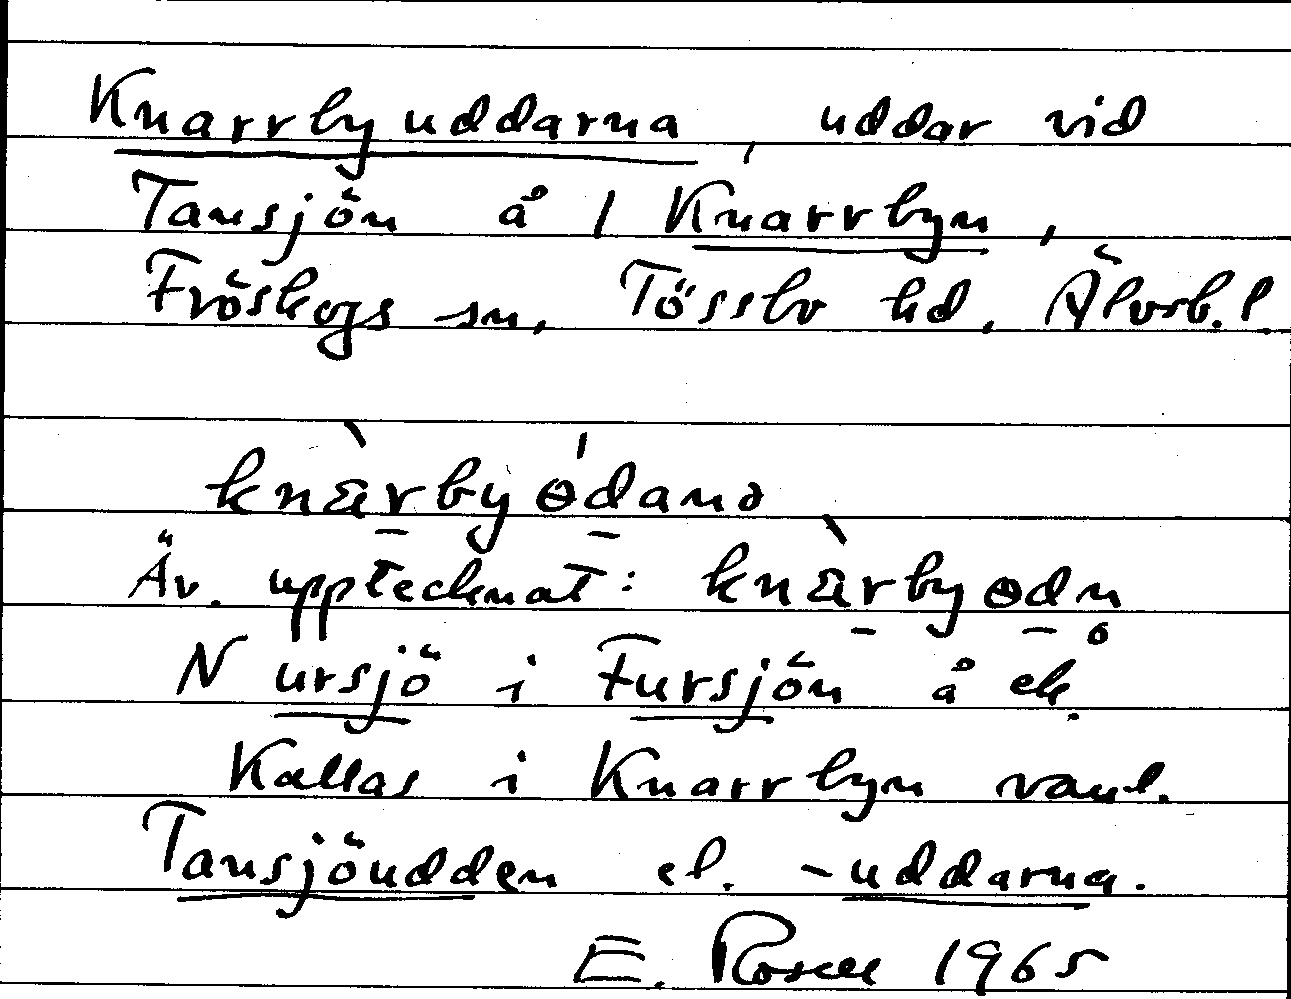 Knarrbyuddarna, uddar vid
Tansjön å 1 Knarrbyn,
Fröskogs sn, Tössbo hd, Älvsb. l.
knàrbyɵ́danə
Äv. upptecknat: knàrbyɵdn̥
N ursjö i Fursjön å ek.
Kallas i Knarrbyn vanl.
Tansjöudden el. -uddarna.
E. Rosell 1965